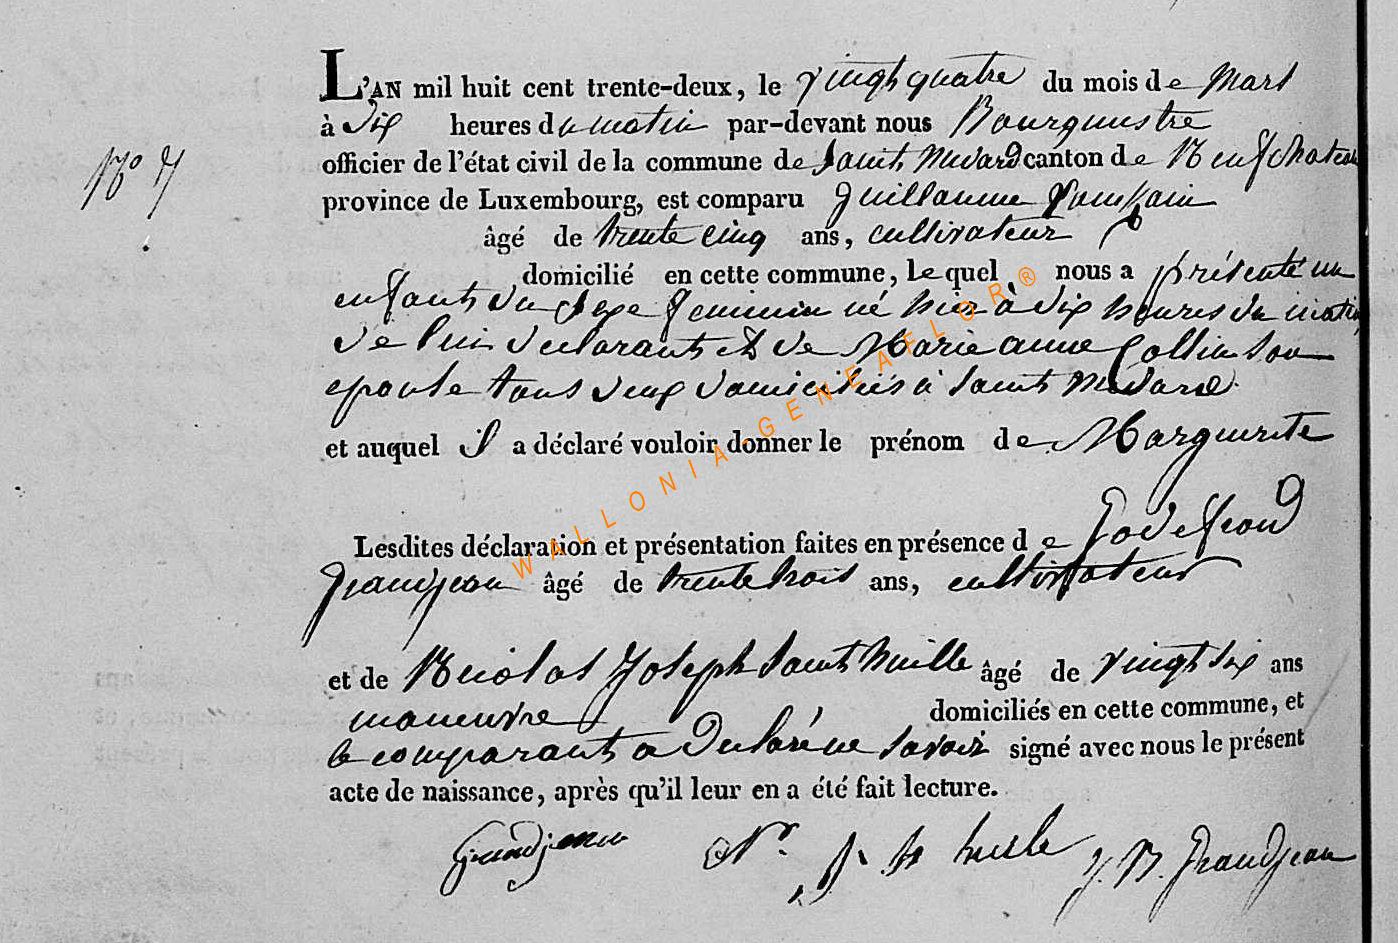 L'AN mil huit cent trente-deux, le vingt quatre du mois de Mars
à dix heures du matin par-devant nous Bourgmestre
officier de l'état civil de la commune de saint medard canton de Neufchateau
N° 7
province de Luxembourg, est comparu Guillaume
âgé de trente cinq ans, cultivateur
domicilié en cette commune, lequel nous a présenté un
enfant du sexe feminin né hier à dix heures du matin
de lui declarant et de Marie anne Collin son
epouse tous deux domiciliés à saint medard
et auquel il a déclaré vouloir donner le prénom de Marguerite
Lesdites déclaration et présentation faites en présence de Godefroid
Grandjean âgé de trente trois ans, cultivateur
et de Nicolas Joseph Saint huille âgé de vingt six ans
maneuvre domiciliés en cette commune, et
le comparant a declaré ne savoir signé avec nous le présent
acte de naissance, après qu'il leur en a été fait lecture.
Grandjean Nr. J. St huile J. N. Grandjean
WALLONIA-GENEAFLOR®